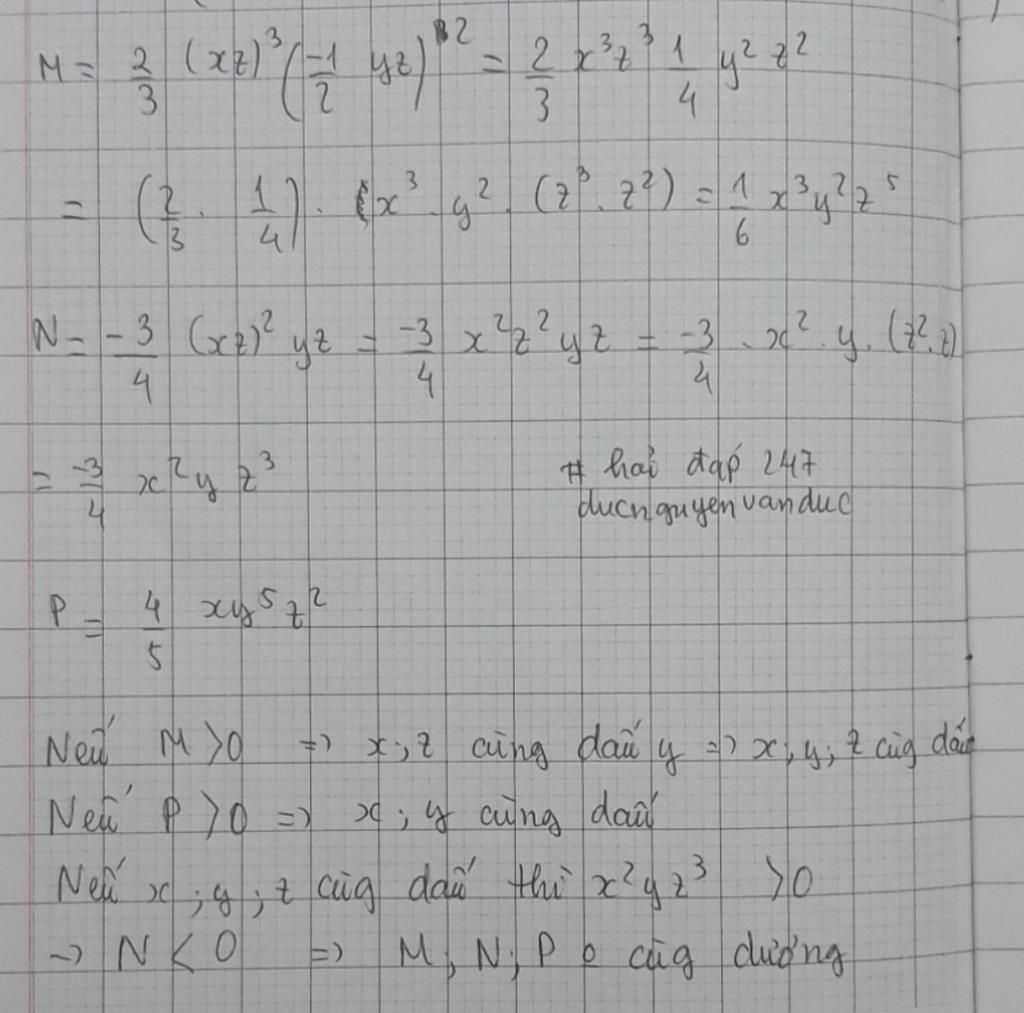 M = 2/3 (xz)³ (-1/2 yz)² = 2/3 x³z³ 1/4 y² z²
= (2/3 . 1/4) . x³ . y² . (z³ . z²) = 1/6 x³y²z⁵
N = -3/4 (xz)² yz = -3/4 x²z² yz = -3/4 . x² . y . (z².z)
= -3/4 x²y z³
# hỏi đáp 247
ducnguyenvanduc
P = 4/5 xy⁵z²
Nếu M > 0 => x ; z cùng dấu y => x ; y ; z cùg dấu
Nếu P > 0 => x ; y cùng dấu
Nếu x ; y ; z cùg dấu thì x²yz³ > 0
-> N < 0 => M, N, P cùg dương